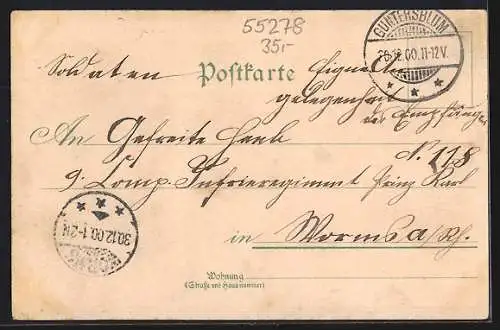 55278
35.-
GUNTERSBLUM
28.12.00.11-12V.
Soldaten Postkarte Eigne An
gelegenheit
des Empfänger
An Gefreite Henk
No. 118
9. Comp. Infrieregiment Prinz Karl
in Worms a/Rh.
30.12.00.1-2N
Wohnung
(Straße und Hausnummer)